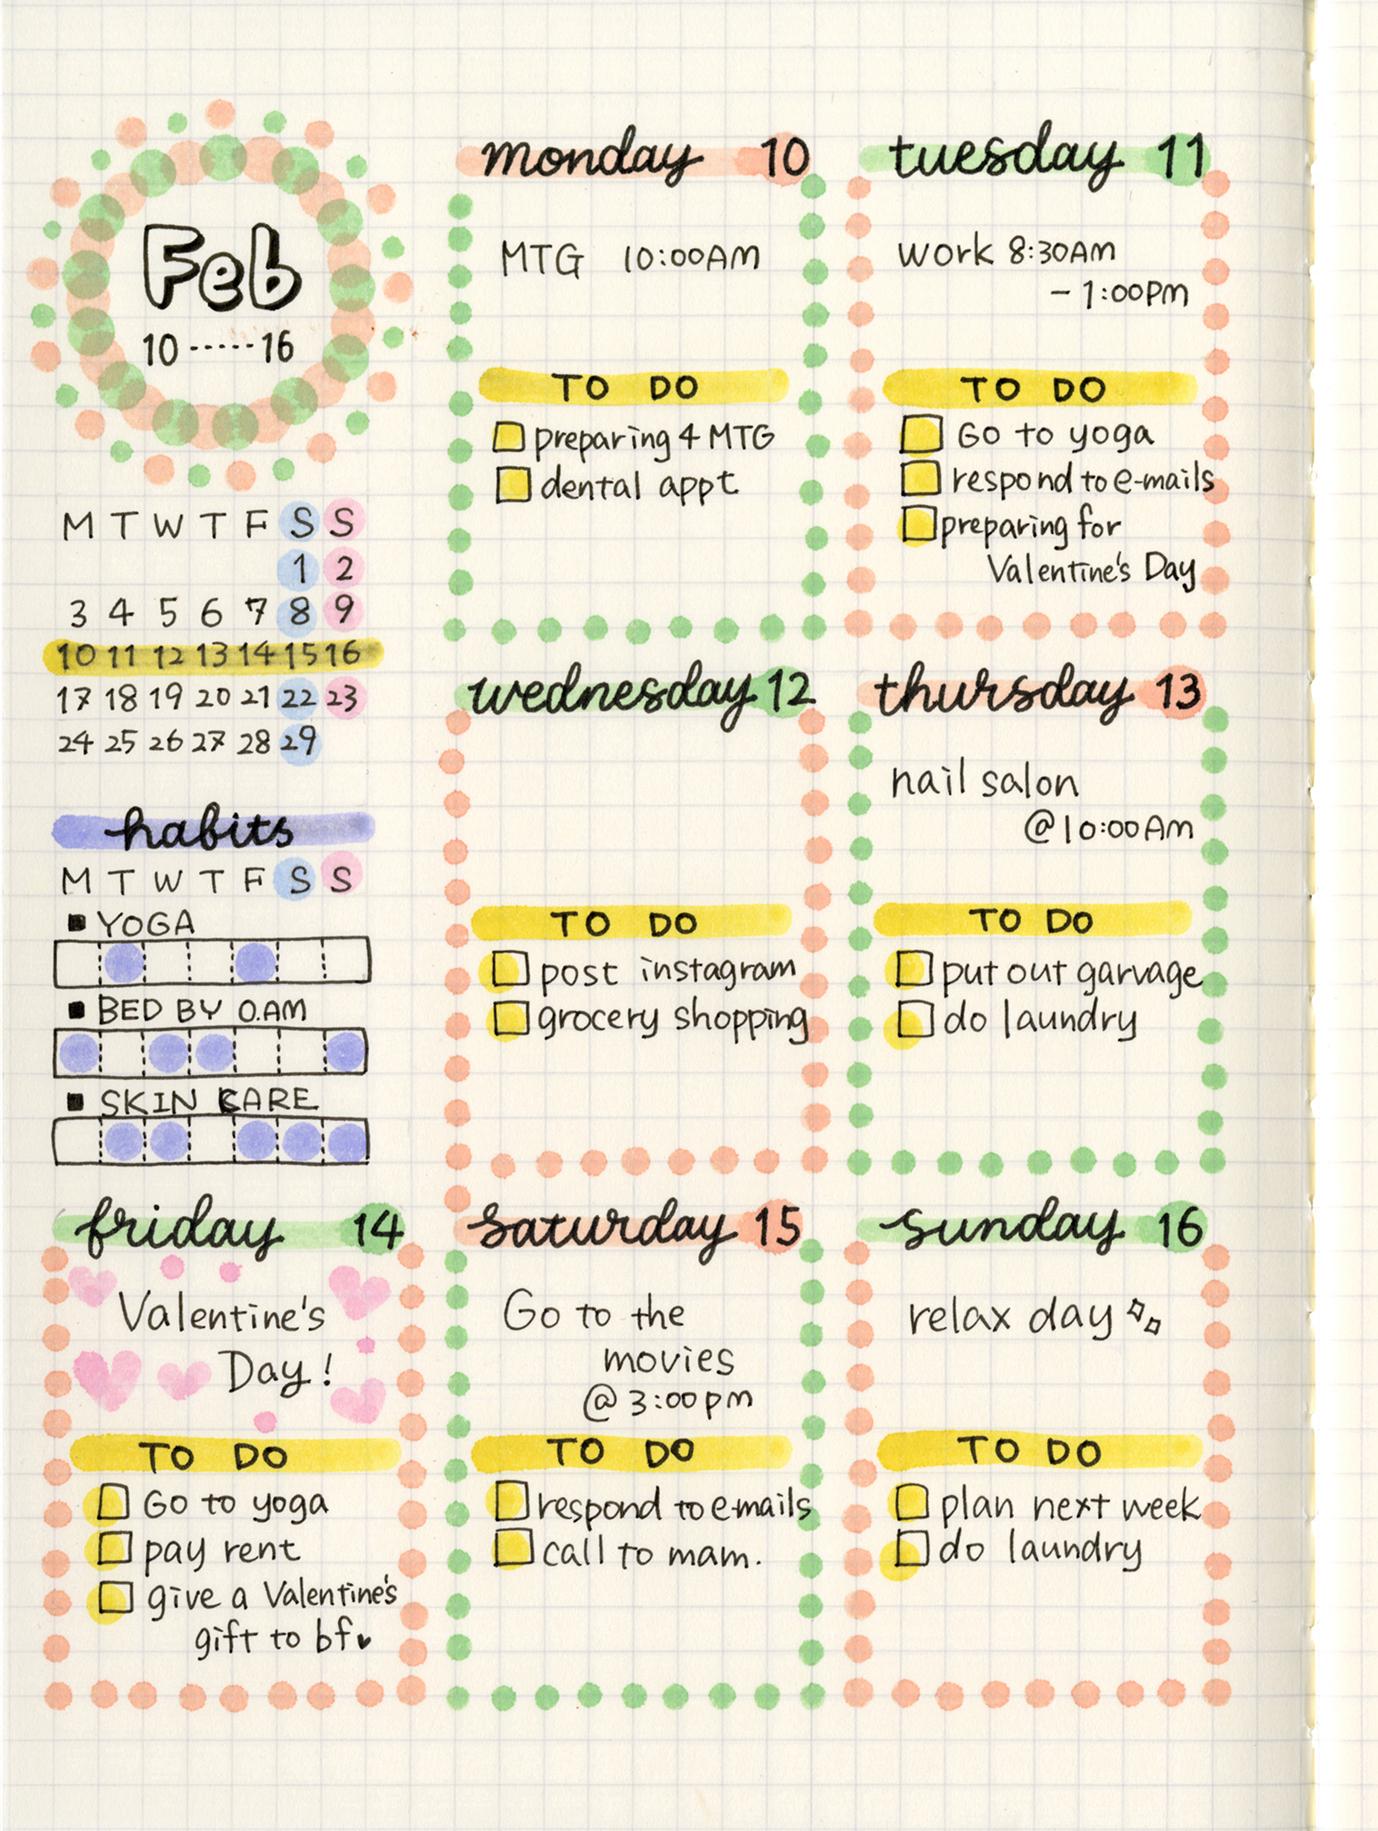 Feb
10 ----- 16
M T W T F S S
1 2
3 4 5 6 7 8 9
10 11 12 13 14 15 16
17 18 19 20 21 22 23
24 25 26 27 28 29
habits
M T W T F S S
■ YOGA
■ BED BY 0.AM
■ SKIN CARE
monday 10
MTG 10:00AM
TO DO
preparing 4 MTG
dental appt
tuesday 11
work 8:30AM
- 1:00PM
TO DO
Go to yoga
respond to e-mails
preparing for
Valentine's Day
wednesday 12
TO DO
post instagram
grocery shopping
thursday 13
nail salon
@10:00AM
TO DO
put out garvage
do laundry
friday 14
Valentine's
Day!
TO DO
Go to yoga
pay rent
give a Valentine's
gift to bf♥
saturday 15
Go to the
movies
@ 3:00pm
TO DO
respond to e-mails
call to mam.
sunday 16
relax day
TO DO
plan next week
do laundry